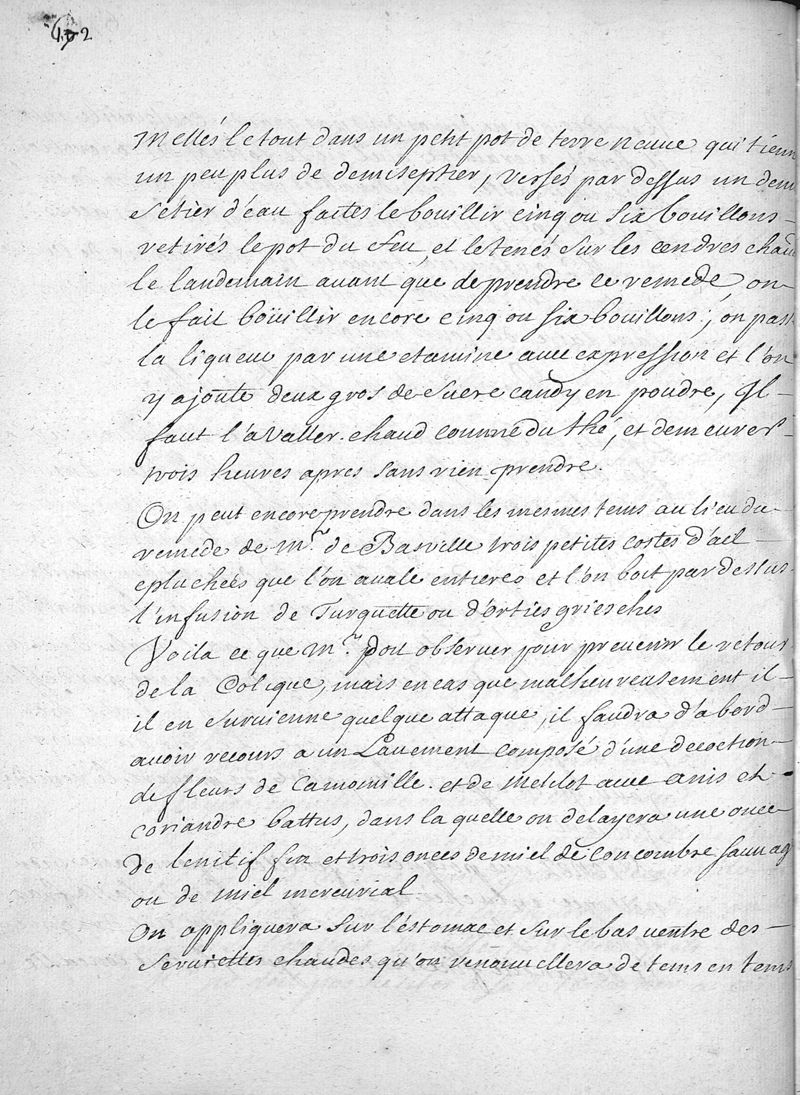 Mellés le tout dans un petit pot de terre neuue qui tienn
un peu plus de demiseptier, versés par dessus un demi
setier d'eau faites le bouillir cinq ou six bouillons
retirés le pot du feu, et le tenés sur les cendres chaud
le landemain auant que de prendre ce remede, on
le fait boüillir encore cinq ou six bouillons, on pass
la liqueur par une etamine auec expression et l'on
y ajoute deux gros de sucre candy en poudre, Il
faut l'avaller chaud comme du thé, et demeurer
trois heures apres sans rien prendre.
On peut encore prendre dans les mesmes tems au lieu du
remede de Mr. de Basville trois petites costes d'ail
epluchées que l'on auale entieres et l'on boit par dessus
l'infusion de Turquette ou d'orties griesches
Voila ce que Mr. doit observer pour preuenir le retour
de la Colique, mais en cas que malheureusement il
il en suruienne quelque attaque, il faudra d'abord
auoir recours a un Lauement composé d'une decoction
de fleurs de Camomille et de Melilot auec anis et
coriandre battus, dans la quelle on delayera une once
de lenitif fin et trois onces de miel de Concombre sauuag
ou de miel mercurial
On appliquera sur l'éstomac et sur le bas uentre des
seruiettes chaudes qu'on renouuellera de tems en tems